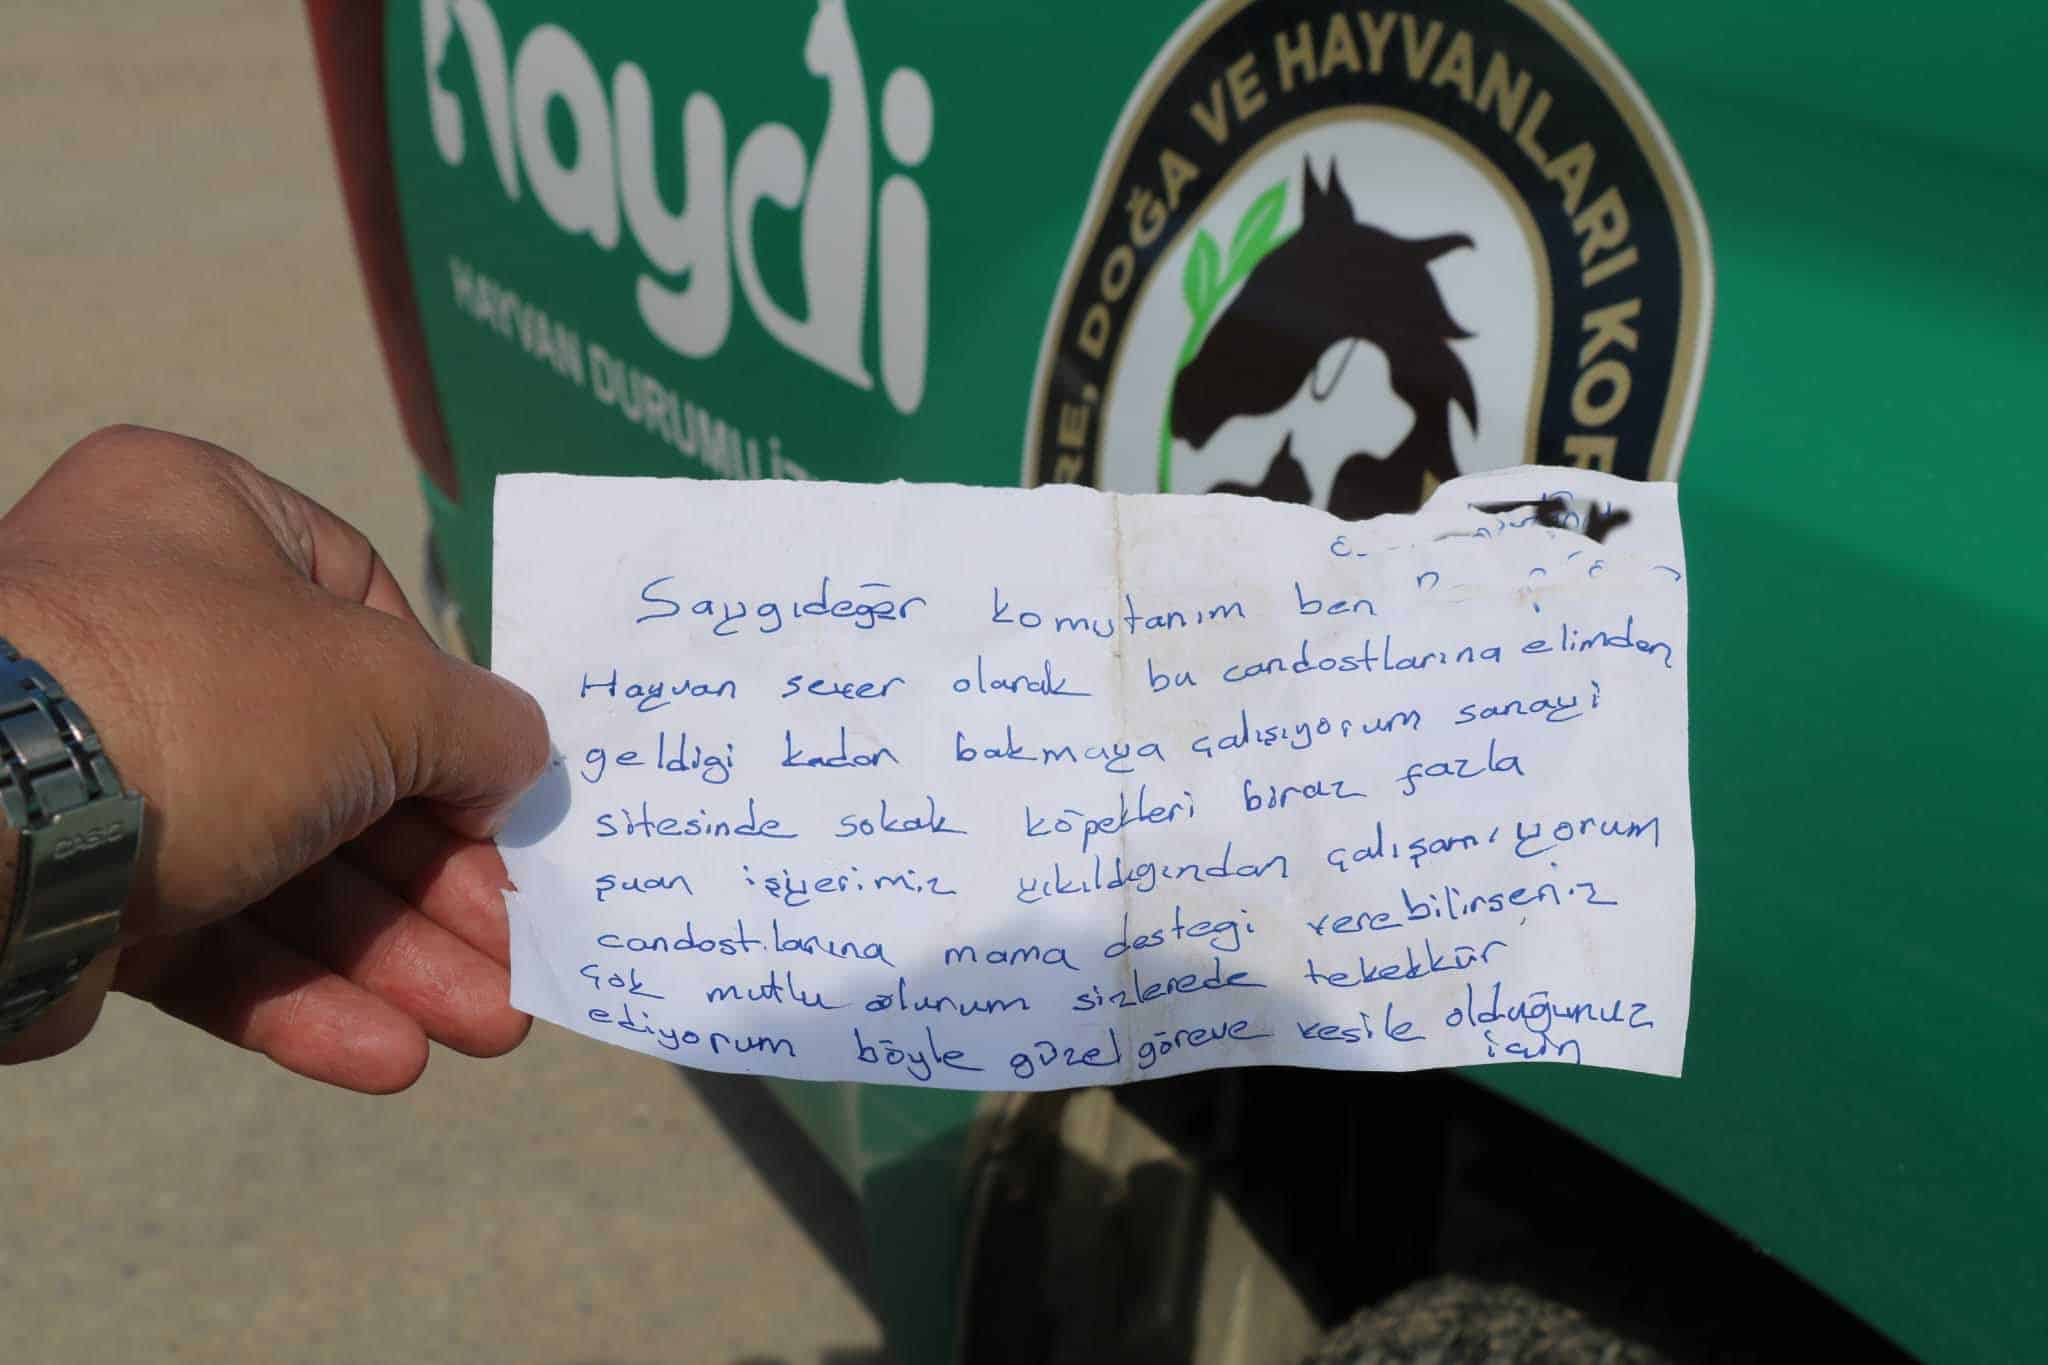 haydi
HAYVAN DURUMU İZ
RE, DOĞA VE HAYVANLARI KOR
CASIO
Saygıdeğer komutanım ben
Hayvan sever olarak bu candostlarına elimden
geldigi kadan bakmaya çalışıyorum sanayi
sitesinde sokak köpekleri biraz fazla
şuan işyerimiz yıkıldıgından çalışamıyorum
candostlarına mama destegi verebilirseniz
çok mutlu olurum sizlerede tekekkür
ediyorum böyle güzel göreve vesile olduğunuz
için